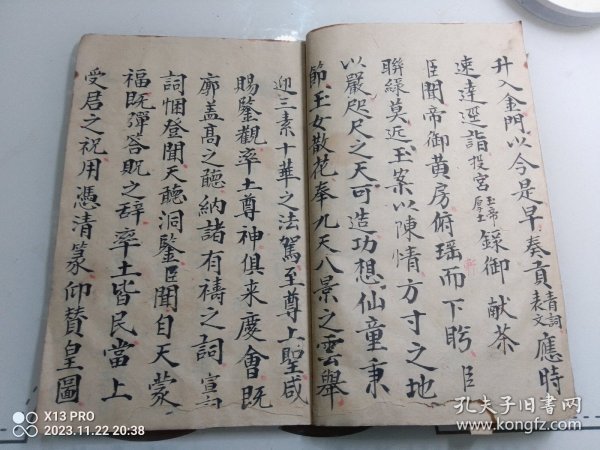 升入金門以今是早奏貢青詞表文應時
速達逕詣投宮玉帝厚土錄御献茶
臣聞帝御黄房俯瑶而下盻臣
聨綠莫近玉案以陳情方寸之地
以嚴咫尺之天可造功想仙童秉
節玉女散花奉九天八景之雲舉
迎三素十華之法駕至尊上聖咸
賜鑒觀率土尊神俱来慶會既
廓盖高之聽納諸有禱之詞寔
詞悃登聞天聽洞鑒臣聞自天蒙
福既彈答貺之辞率土皆民當上
受君之祝用憑清篆仰賛皇圖
X13 PRO
2023.11.22 20:38
孔夫子旧書网
www.kongfz.com